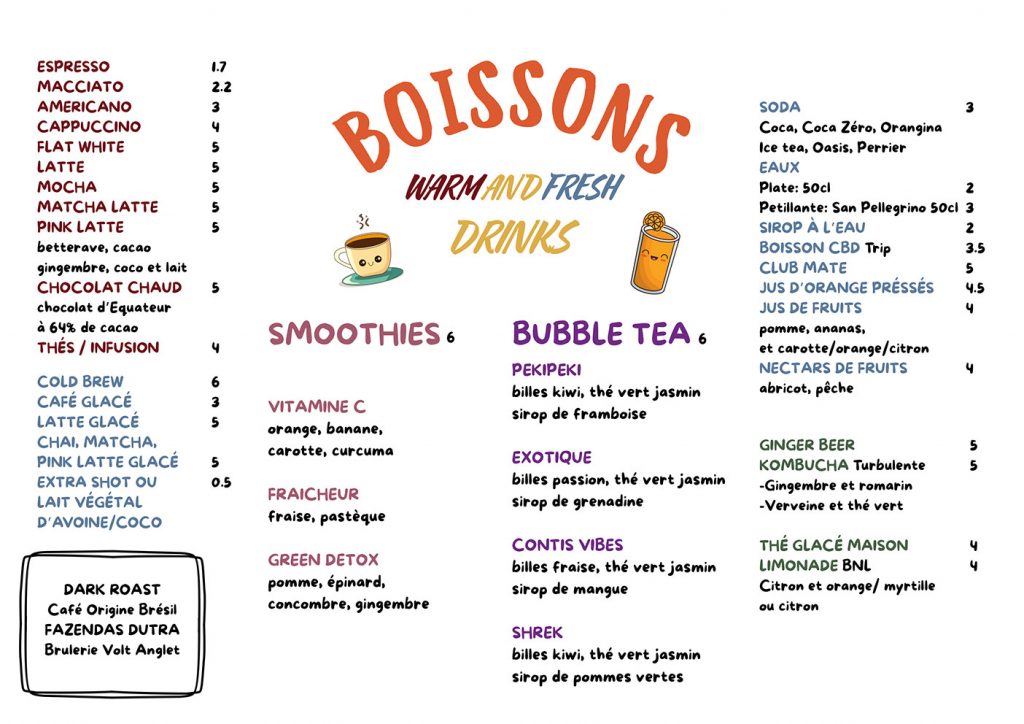 BOISSONS
WARM AND FRESH
DRINKS
ESPRESSO 1.7
MACCIATO 2.2
AMERICANO 3
CAPPUCCINO 4
FLAT WHITE 5
LATTE 5
MOCHA 5
MATCHA LATTE 5
PINK LATTE 5
betterave, cacao
gingembre, coco et lait
CHOCOLAT CHAUD 5
chocolat d'Equateur
à 64% de cacao
THÉS / INFUSION 4
COLD BREW 6
CAFÉ GLACÉ 3
LATTE GLACÉ 5
CHAI, MATCHA,
PINK LATTE GLACÉ 5
EXTRA SHOT OU 0.5
LAIT VÉGÉTAL
D'AVOINE/COCO
DARK ROAST
Café Origine Brésil
FAZENDAS DUTRA
Brulerie Volt Anglet
SMOOTHIES 6
VITAMINE C
orange, banane,
carotte, curcuma
FRAICHEUR
fraise, pastèque
GREEN DETOX
pomme, épinard,
concombre, gingembre
BUBBLE TEA 6
PEKIPEKI
billes kiwi, thé vert jasmin
sirop de framboise
EXOTIQUE
billes passion, thé vert jasmin
sirop de grenadine
CONTIS VIBES
billes fraise, thé vert jasmin
sirop de mangue
SHREK
billes kiwi, thé vert jasmin
sirop de pommes vertes
SODA 3
Coca, Coca Zéro, Orangina
Ice tea, Oasis, Perrier
EAUX
Plate: 50cl 2
Petillante: San Pellegrino 50cl 3
SIROP À L'EAU 2
BOISSON CBD Trip 3.5
CLUB MATE 5
JUS D'ORANGE PRÉSSÉS 4.5
JUS DE FRUITS 4
pomme, ananas,
et carotte/orange/citron
NECTARS DE FRUITS 4
abricot, pêche
GINGER BEER 5
KOMBUCHA Turbulente 5
-Gingembre et romarin
-Verveine et thé vert
THÉ GLACÉ MAISON 4
LIMONADE BNL 4
Citron et orange/ myrtille
ou citron